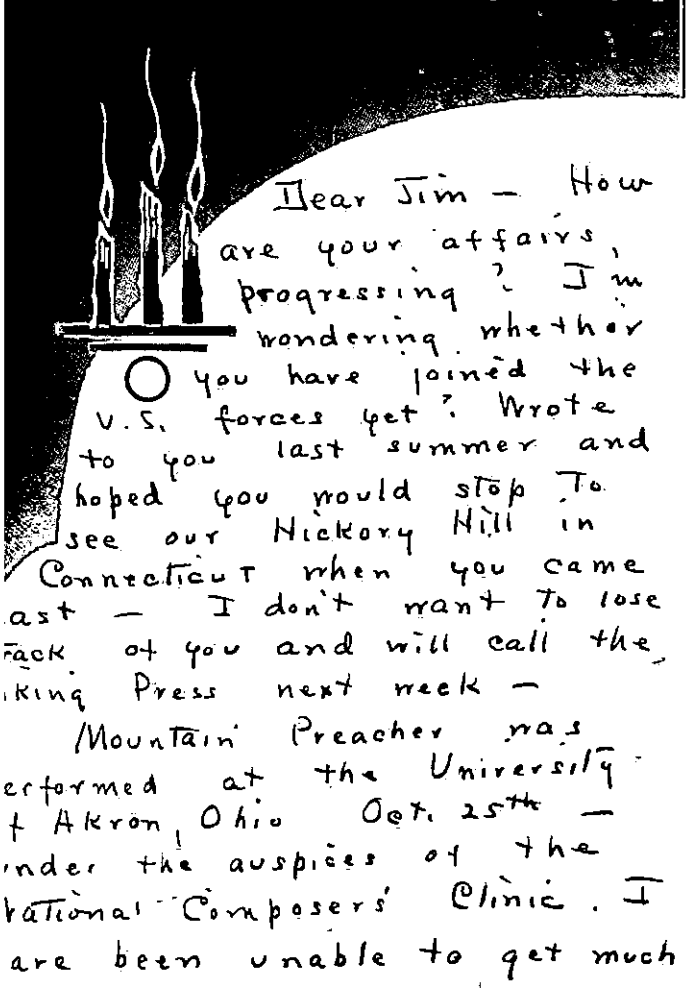 Dear Jim — How
are your affairs,
progressing? I'm
wondering whether
you have joined the
U.S. forces yet? Wrote
to you last summer and
hoped you would stop To
see our Hickory Hill in
Connecticut when you came
ast — I don't want To lose
rack of you and will call the
iking Press next week —
Mountain Preacher was
erformed at the University
f Akron, Ohio Oct. 25th —
nder the auspices of the
National Composers' Clinic. I
ave been unable to get much